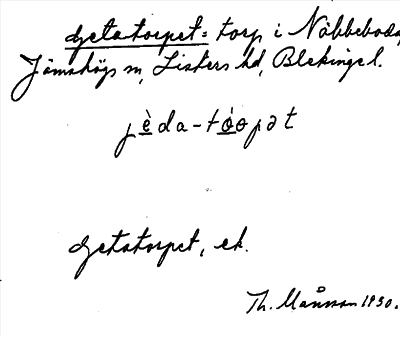 Getatorpet: torp i Näbbeboda,
Jämshögs sn, Listers hd, Blekinge l.
jèda-tóopət
Getatorpet, ek.
Th. Månsson 1930.